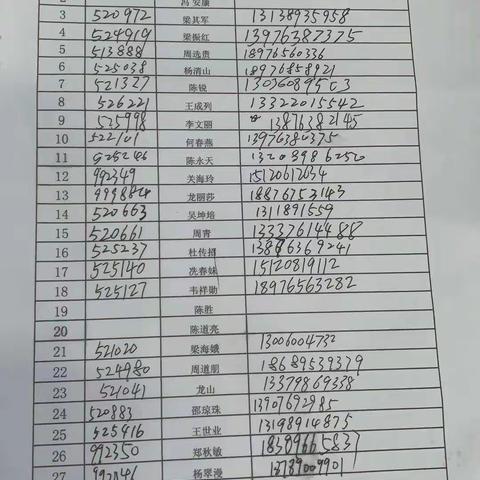 2 冯安康
3 520972 梁其军 13138935958
4 524919 梁振红 13976387375
5 513888 周选贵 18976560336
6 525038 杨清山 18976858921
7 521327 陈锐
8 526221 王成列 13322015542
9 525998 李文丽 13876382145
10 522101 何春燕 13976380375
11 陈永天
12 992349 关海玲 15120612634
13 999884 龙丽莎 18876753143
14 520663 吴坤培 1311891559
15 520661 周青 13337614488
16 525237 杜传招 13876369241
17 525140 冼春妹 15120819112
18 525127 韦祥勋 18976563282
19 陈胜
20 陈道亮
21 521020 梁海娥 13006004732
22 524980 周道朋 18689539379
23 521041 龙山 13379869338
24 520883 邵琼珠 13907692985
25 525416 王世业 13198914875
26 992350 郑秋敏 18389665837
27 杨翠漫